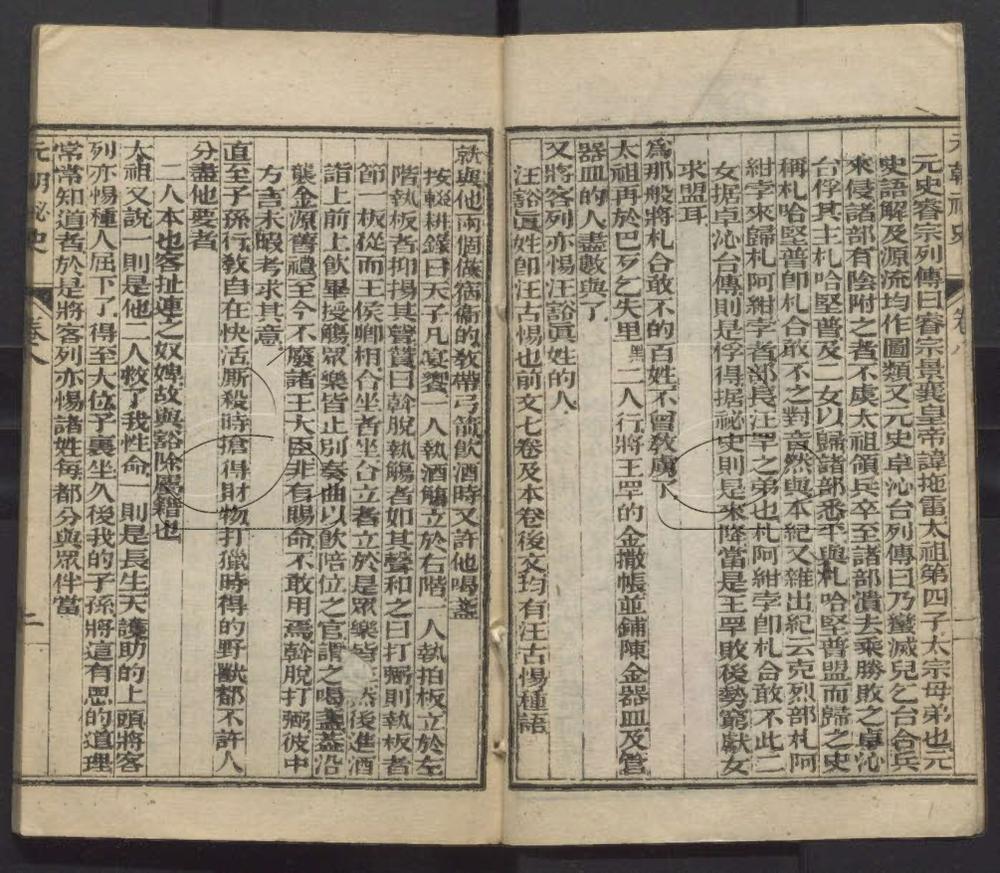 元史睿宗列傳曰睿宗景襄皇帝諱拖雷太祖第四子太宗母弟也元
史語解及源流均作圖類又元史卓沁台列傳曰乃蠻滅兒乞台合兵
來侵諸部有陰附之者不虞太祖領兵卒至諸部潰去乘勝敗之卓沁
台俘其主札哈堅普及二女以歸諸部悉平與札哈堅普盟而歸之史
稱札哈堅普卽札合敢不之對音然與本紀又雜出紀云克烈部札阿
紺孛來歸札阿紺孛者部長汪罕之弟也札阿紺孛卽札合敢不此二
女据卓沁台傳則是俘得据祕史則是來降當是王罕敗後勢窮獻女
求盟耳
爲那般將札合敢不的百姓不曾敎虜了
太祖再於巴歹乞失里黑二人行將王罕的金撒帳並鋪陳金器皿及管
器皿的人盡數與了
又將客列亦惕汪豁眞姓的人
汪豁眞姓卽汪古惕也前文七卷及本卷後文均有汪古惕種語
元朝祕史
卷八
就與他兩個做宿衞的敎帶弓箭飲酒時又許他喝盞
按輟耕錄曰天子凡宴饗一人執酒觴立於右階一人執拍板立於左
階執板者抑揚其聲贊曰斡脫執觴者如其聲和之曰打弼則執板者
節一板從而王侯卿相合坐者坐合立者立於是眾樂皆然後進酒
詣上前上飲畢授觴眾樂皆止別奏曲以飲陪位之官謂之喝盞蓋沿
襲金源舊禮至今不廢諸王大臣非有賜命不敢用焉斡脫打弼彼中
方言未暇考求其意
直至子孫行敎自在快活厮殺時搶得財物打獵時得的野獸都不許人
分盡他要者
二人本也客扯連之奴婢故與豁除厮籍也
太祖又說一則是他二人救了我性命一則是長生天護助的上頭將客
列亦惕種人屈下了得至大位予裏坐久後我的子孫將這有恩的道理
常常知道者於是將客列亦惕諸姓每都分與眾伴當
元朝祕史
卷八
二